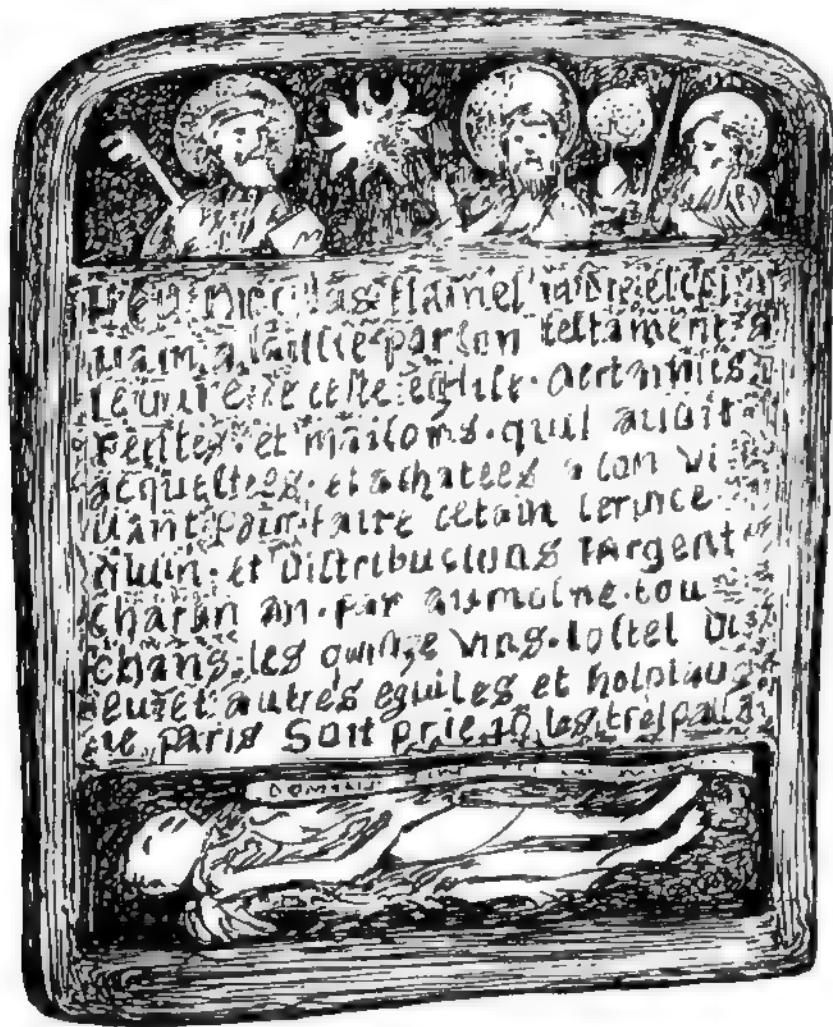 Feu Nicolas flamel iadis escri
uain a laissie par son testament a
leuure de ceste eglise certaines
Rentes et maisons quil auoit
acquestees et achatees a son vi
uant pour faire cetain seruice
diuin et distribucions dargent
chacun an par aumosne tou
chans les quinze vins lostel di
eu et autres eguises et hospitaus
de paris Soit prie les trespasse